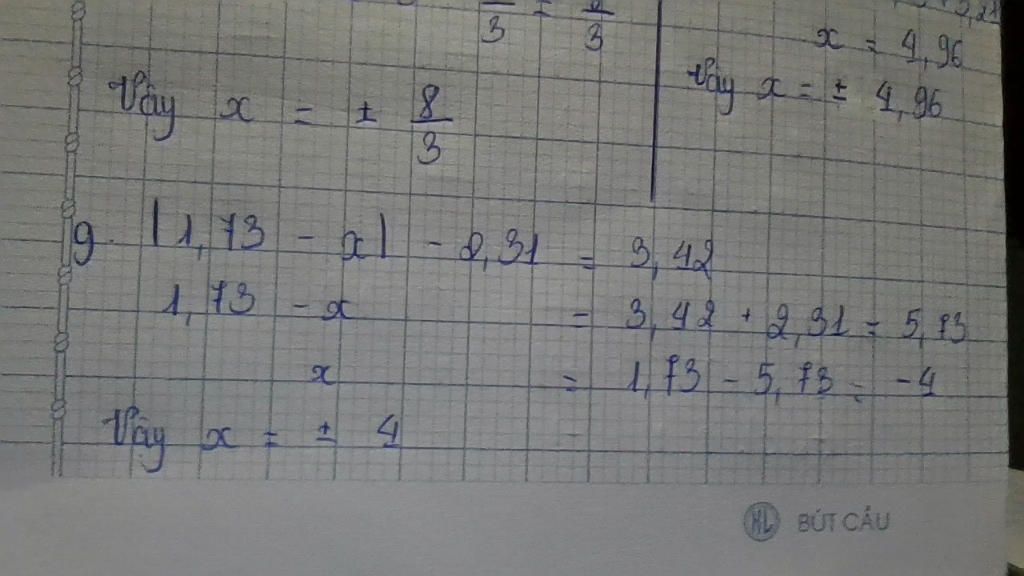 3 = 3
Vậy x = ± 8/3
x = 4,96
Vậy x = ± 4,96
g. |1,73 - x| - 2,31 = 3,42
1,73 - x = 3,42 + 2,31 = 5,73
x = 1,73 - 5,73 = -4
Vậy x = ± 4
ML BÚT CẦU